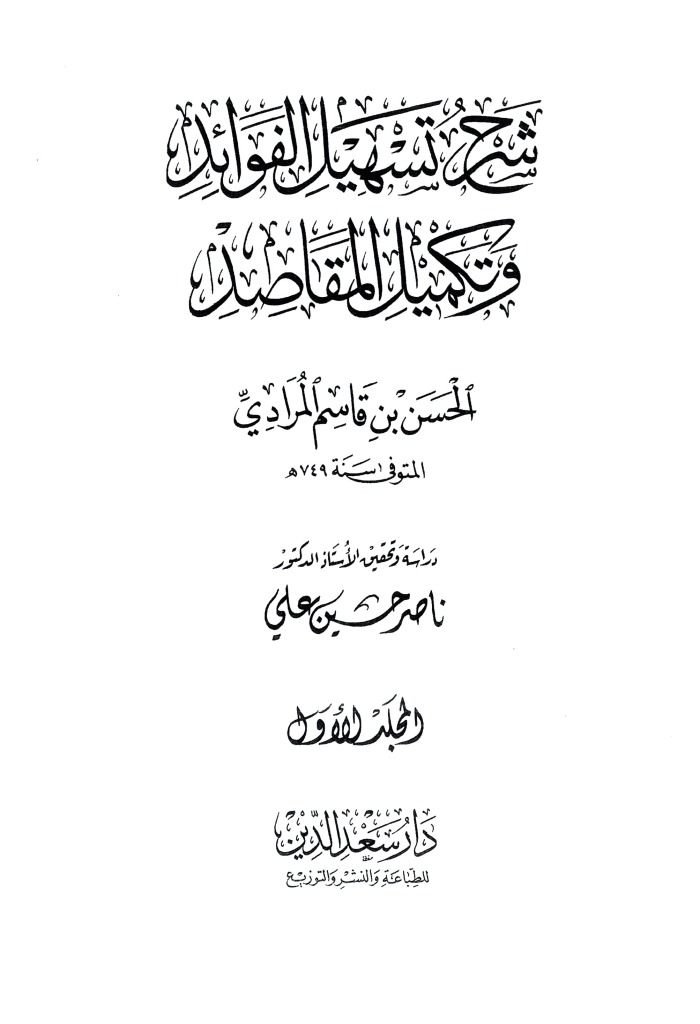 شَرْحُ تَسْهِيلِ الفَوَائِدِ
وَتَكْمِيلِ المَقَاصِدِ
الْحَسَنُ بْنُ قَاسِمٍ الْمُرَادِيِّ
المتوفى سَنَة ٧٤٩هـ
دراسة وتحقيق الأستاذ الدكتور
ناصر حسين علي
المجلد الأول
دَار سَعْد الدِّين
للطِّبَاعَة وَالنَّشْر وَالتَّوزيع